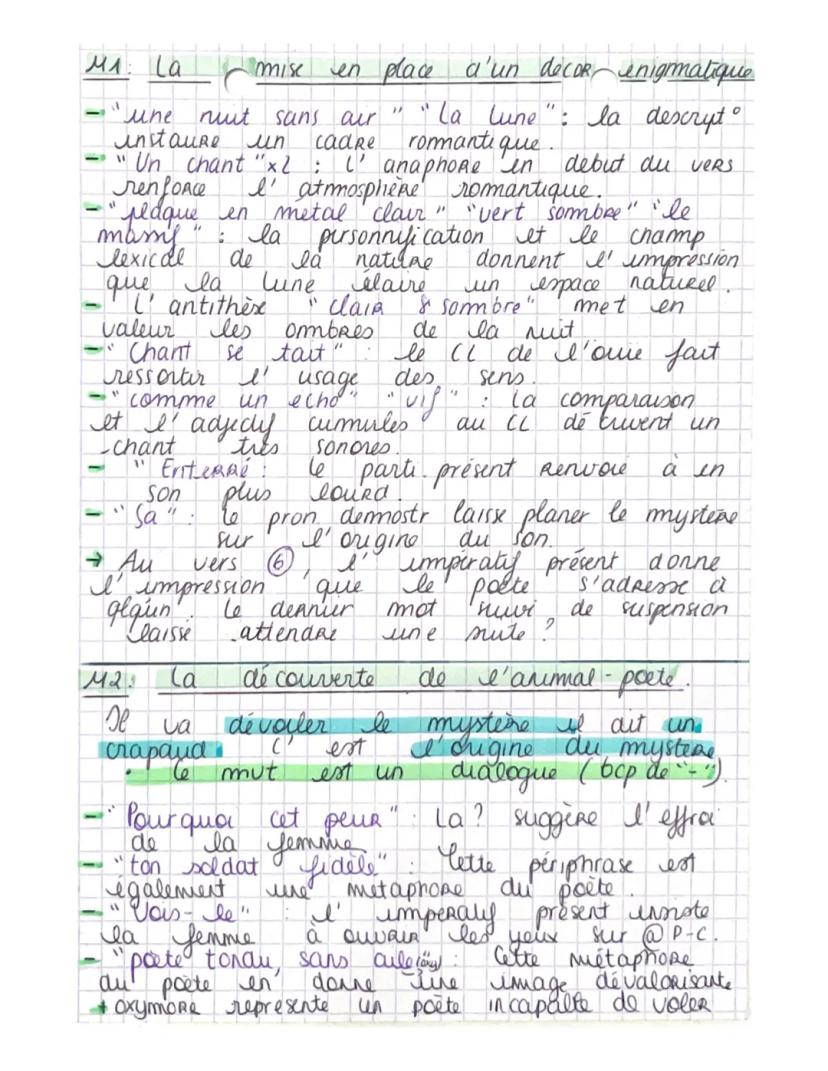 M1: La mise en place d'un décor enigmatique
- "une nuit sans air" "La Lune": la descript°
instaure un cadre rommantique.
- "Un chant"x2 : L'anaphore en debut du vers
renforce l'atmosphère romantique.
- "plaque en métal clair" "vert sombre" "le
massif" : la personnification et le champ
lexical de la nature donnent l'impression
que la lune élaire un espace natureel.
- L'antithèse "clair & sommbre" met en
valeur les ombres de la nuit
- "Chant se tait" : le CL de l'ouie fait
ressortir l'usage des sens.
- "comme un echo" "vif" : La comparaison
et l'adjectif cumulés au CL décrivent un
chant très sonores.
- "Enterré : le parti. présent renvoie à un
son plus lourd.
- "Sa" : le pron. demmostr laisse planer le mystère
sur l'origine du son.
→ Au vers ⑥, l'impératif présent donne
l'impression que le poète s'adresse à
qlqun. Le dernier mot suivi de suspension
laisse attendre une suite?
M2: La découverte de l'animal-poete.
Il va dévoiler le mystère il dit un
crapaud. C'est l'origine du mystère
• Le mvt est un dialogue (bcp de "-")
- "Pourquoi cet peur" : La ? suggère l'effroi
de la femme
- "ton soldat fidèle" : Cette périphrase est
également une métaphore du poète.
- "Vois-le" : l'imperatif présent insiste
la femme à ouvrir les yeux sur @ P-C.
- "poète tondu, sans aile : Cette métaphore
du poète en donne une image dévalorisante
+ oxymore représente un poète incapable de voler